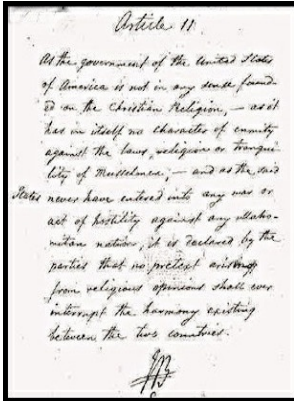 Article 11
As the government of the United States
of America is not in any sense found-
ed on the Christian Religion, — as it
has in itself no character of enmity
against the laws, religion or tranqui-
lity of Musselmen; — and as the said
States never have entered into any war or
act of hostility against any Maho-
mitan nation, it is declared by the
parties that no pretext arising
from religious opinions shall ever
interrupt the harmony existing
between the two countries.
JB